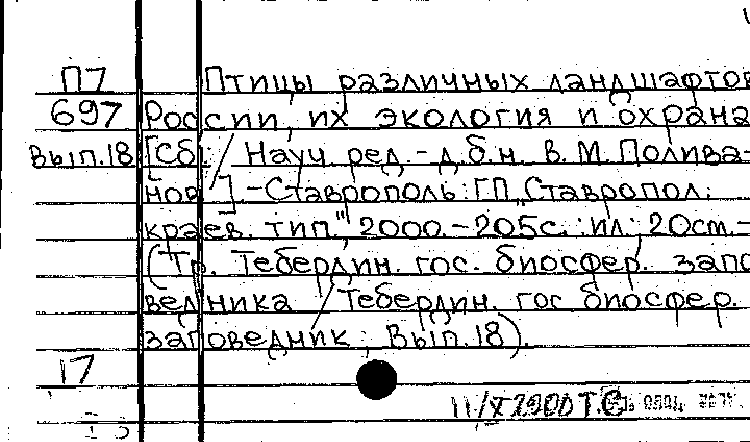 П7 Птицы различных ландшафтов
697 России, их экология и охрана
Вып.18 [Сб. / Науч. ред. - д.б.н. В.М. Полива-
нов]. - Ставрополь: ГП "Ставропол.
краев. тип", 2000. - 205с.: ил; 20см. -
(Тр. Тебердин. гос. биосфер. запо
ведника / Тебердин. гос биосфер.
заповедник; Вып.18).
17
11/X 2000 Т.С